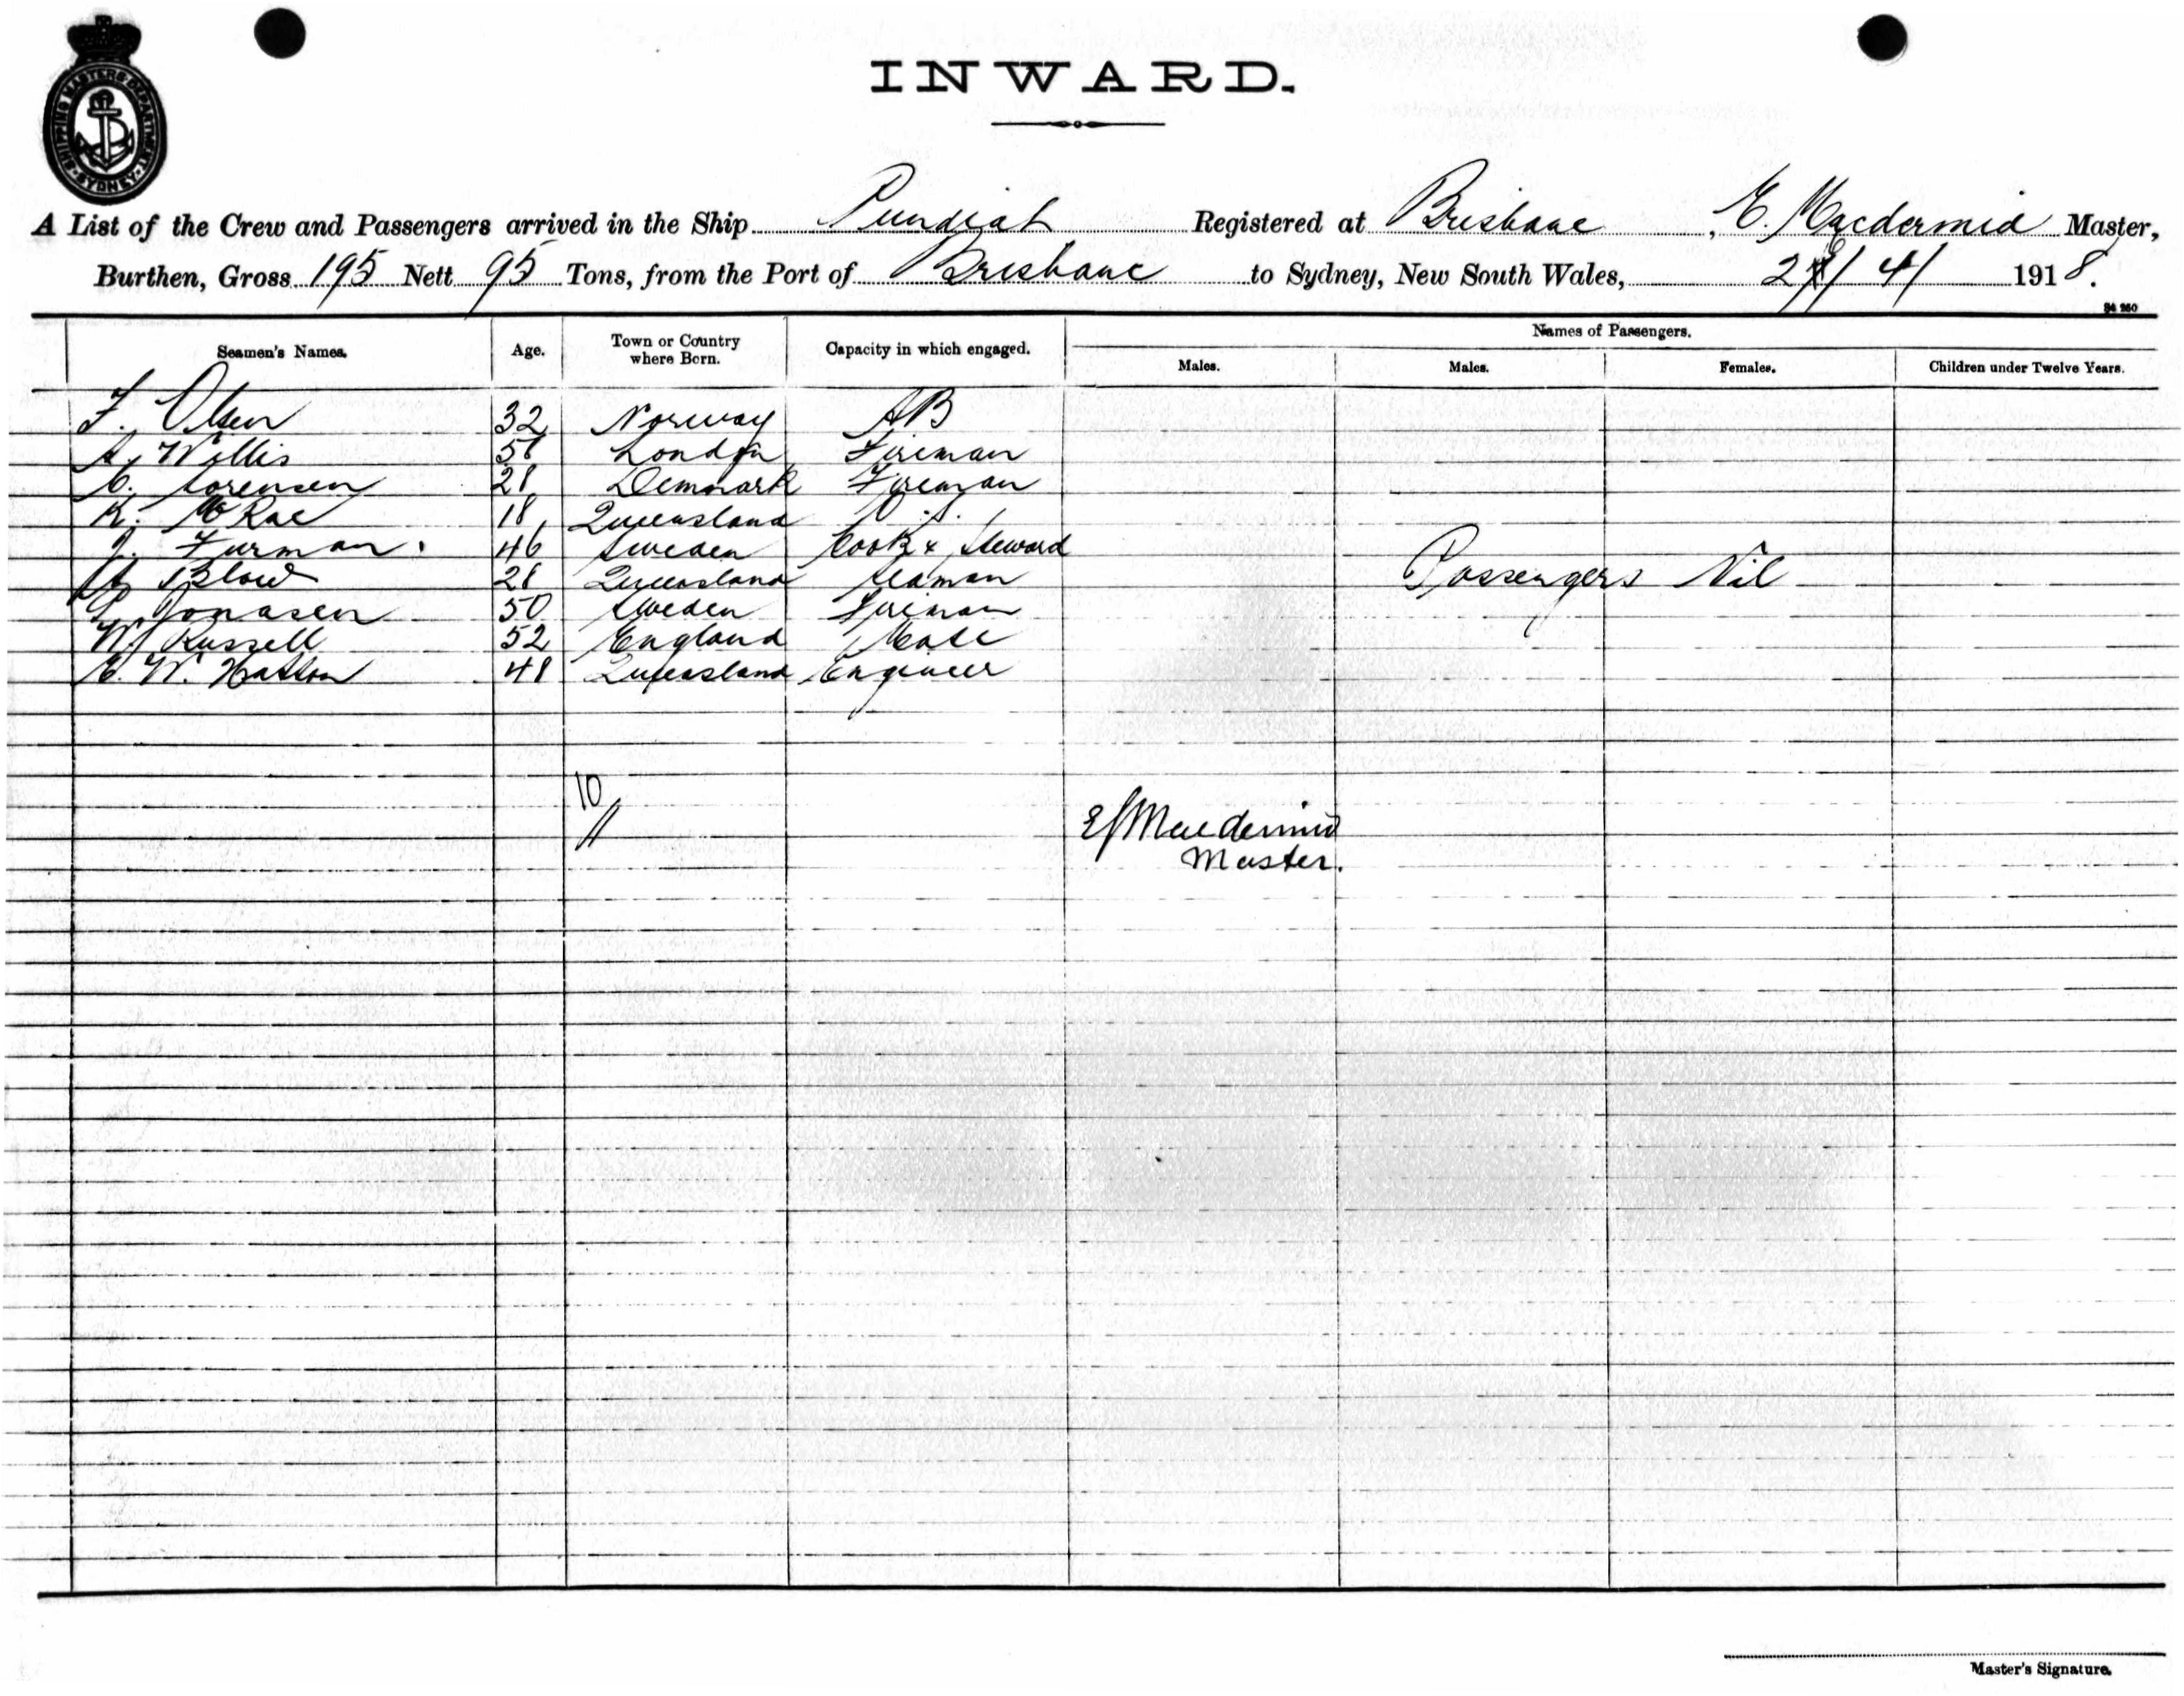 SHIPPING MASTERS DEPARTMENT SYDNEY
INWARD.
A List of the Crew and Passengers arrived in the Ship Registered at Brisbane, E. Macdermid Master,
Burthen, Gross 195 Nett 95 Tons, from the Port of Brisbane to Sydney, New South Wales, 4/ 1918.
Names of Passengers.
Seamen's Names. Age. Town or Country where Born. Capacity in which engaged. Males. Males. Females. Children under Twelve Years.
F. Olsen 32 Norway AB
A. Willis London Fireman
C. Sorensen 28 Denmark Fireman
K. McRae 18 Queensland O.S.
J. Furman. 46 Sweden Cook & Steward
Blow 28 Queensland Seaman Passengers Nil
Jonasen 50 Sweden Fireman
W. Russell 52 England Mate
E. W. Hatton 48 Queensland Engineer
10
E J Macdermid
Master.
Master's Signature.